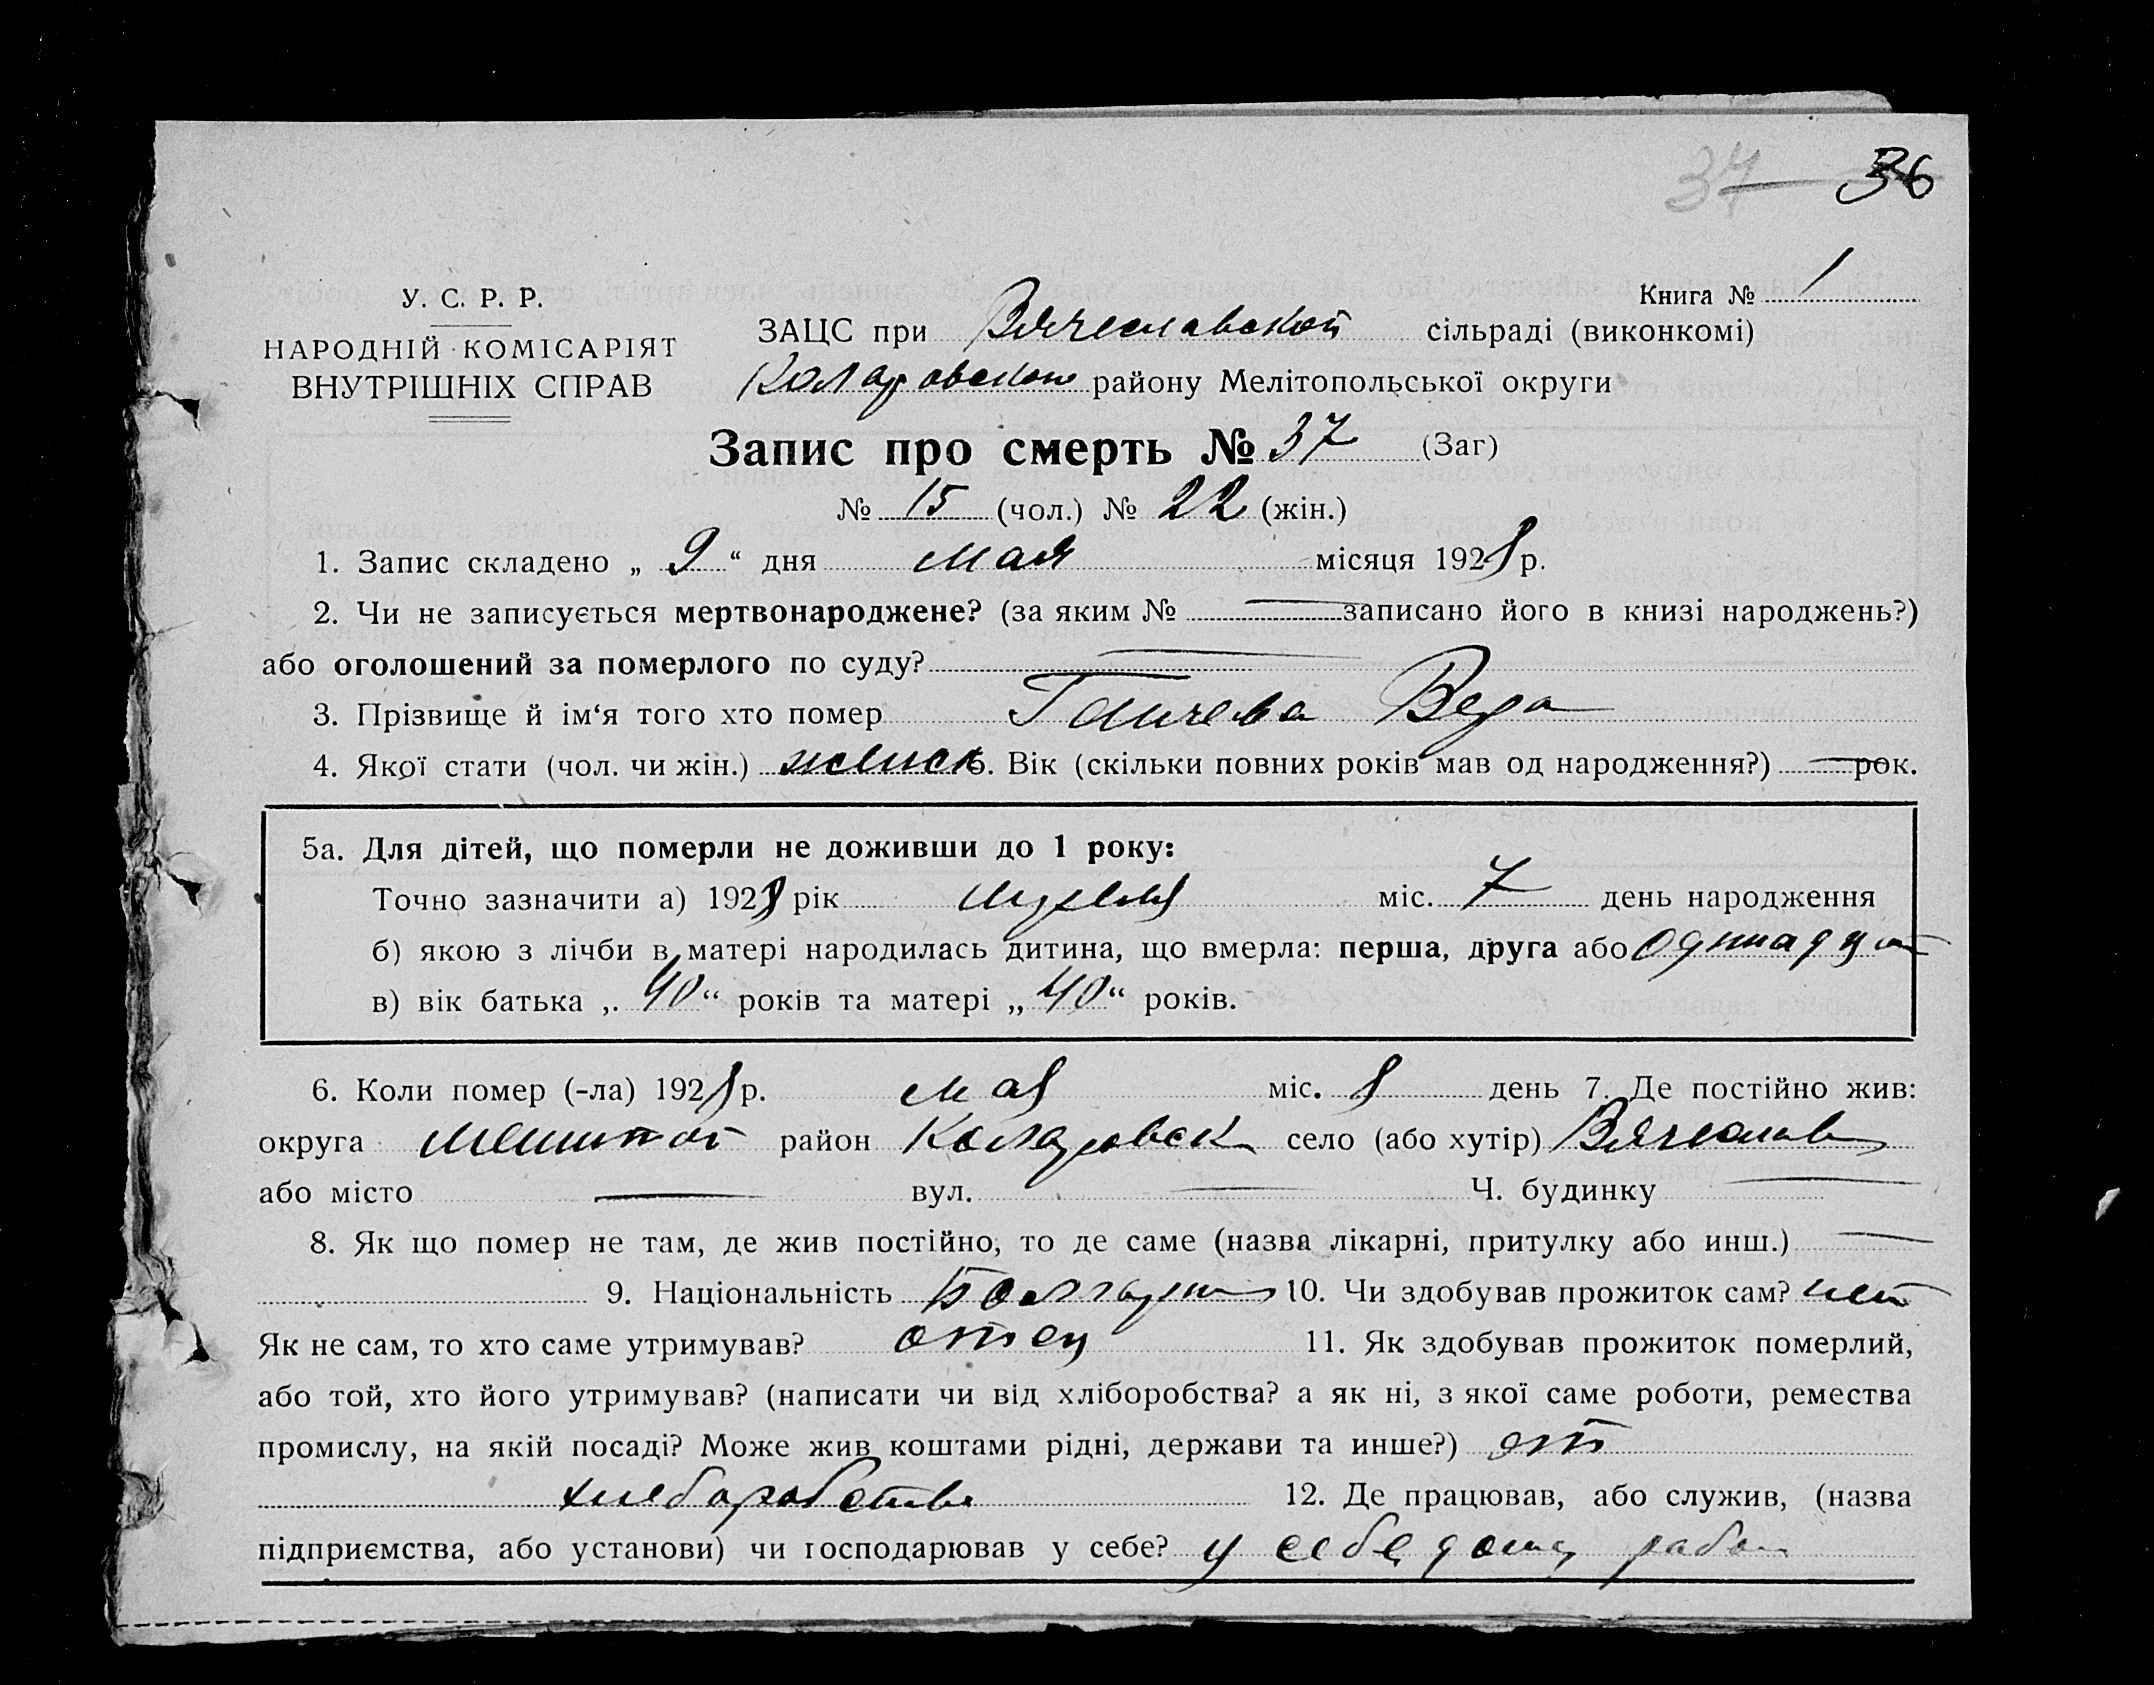 37 36
Книга № 1
У. С. Р. Р.
ЗАЦС при Вячеславской сільраді (виконкомі)
НАРОДНІЙ КОМІСАРІЯТ
ВНУТРІШНІХ СПРАВ
Коларовского району Мелітопольської округи
Запис про смерть № 37 (Заг)
№ 15 (чол.) № 22 (жін.)
1. Запис складено „ 9 “ дня мая місяця 1928 р.
2. Чи не записується мертвонароджене? (за яким № — записано його в книзі народжень?)
або оголошений за померлого по суду? —
3. Прізвище й ім‘я того хто помер Ганчева Вера
4. Якої стати (чол. чи жін.) женск 5. Вік (скільки повних років мав од народження?) — рок.
5а. Для дітей, що померли не доживши до 1 року:
Точно зазначити а) 1928 рік апреля міс. 7 день народження
б) якою з лічби в матері народилась дитина, що вмерла: перша, друга або одинадцат
в) вік батька „ 40 “ років та матері „ 40 “ років.
6. Коли помер (-ла) 1928 р. мая міс. 8 день 7. Де постійно жив:
округа Мелитоп район Коларовск село (або хутір) Вячеслав
або місто — вул. — Ч. будинку —
8. Як що помер не там, де жив постійно, то де саме (назва лікарні, притулку або инш.) —
9. Національність Болгарин 10. Чи здобував прожиток сам? нет
Як не сам, то хто саме утримував? отец 11. Як здобував прожиток померлий,
або той, хто його утримував? (написати чи від хліборобства? а як ні, з якої саме роботи, ремества
промислу, на якій посаді? Може жив коштами рідні, держави та инше?) от
хлеборобства 12. Де працював, або служив, (назва
підприємства, або установи) чи господарював у себе? у себе дома работ